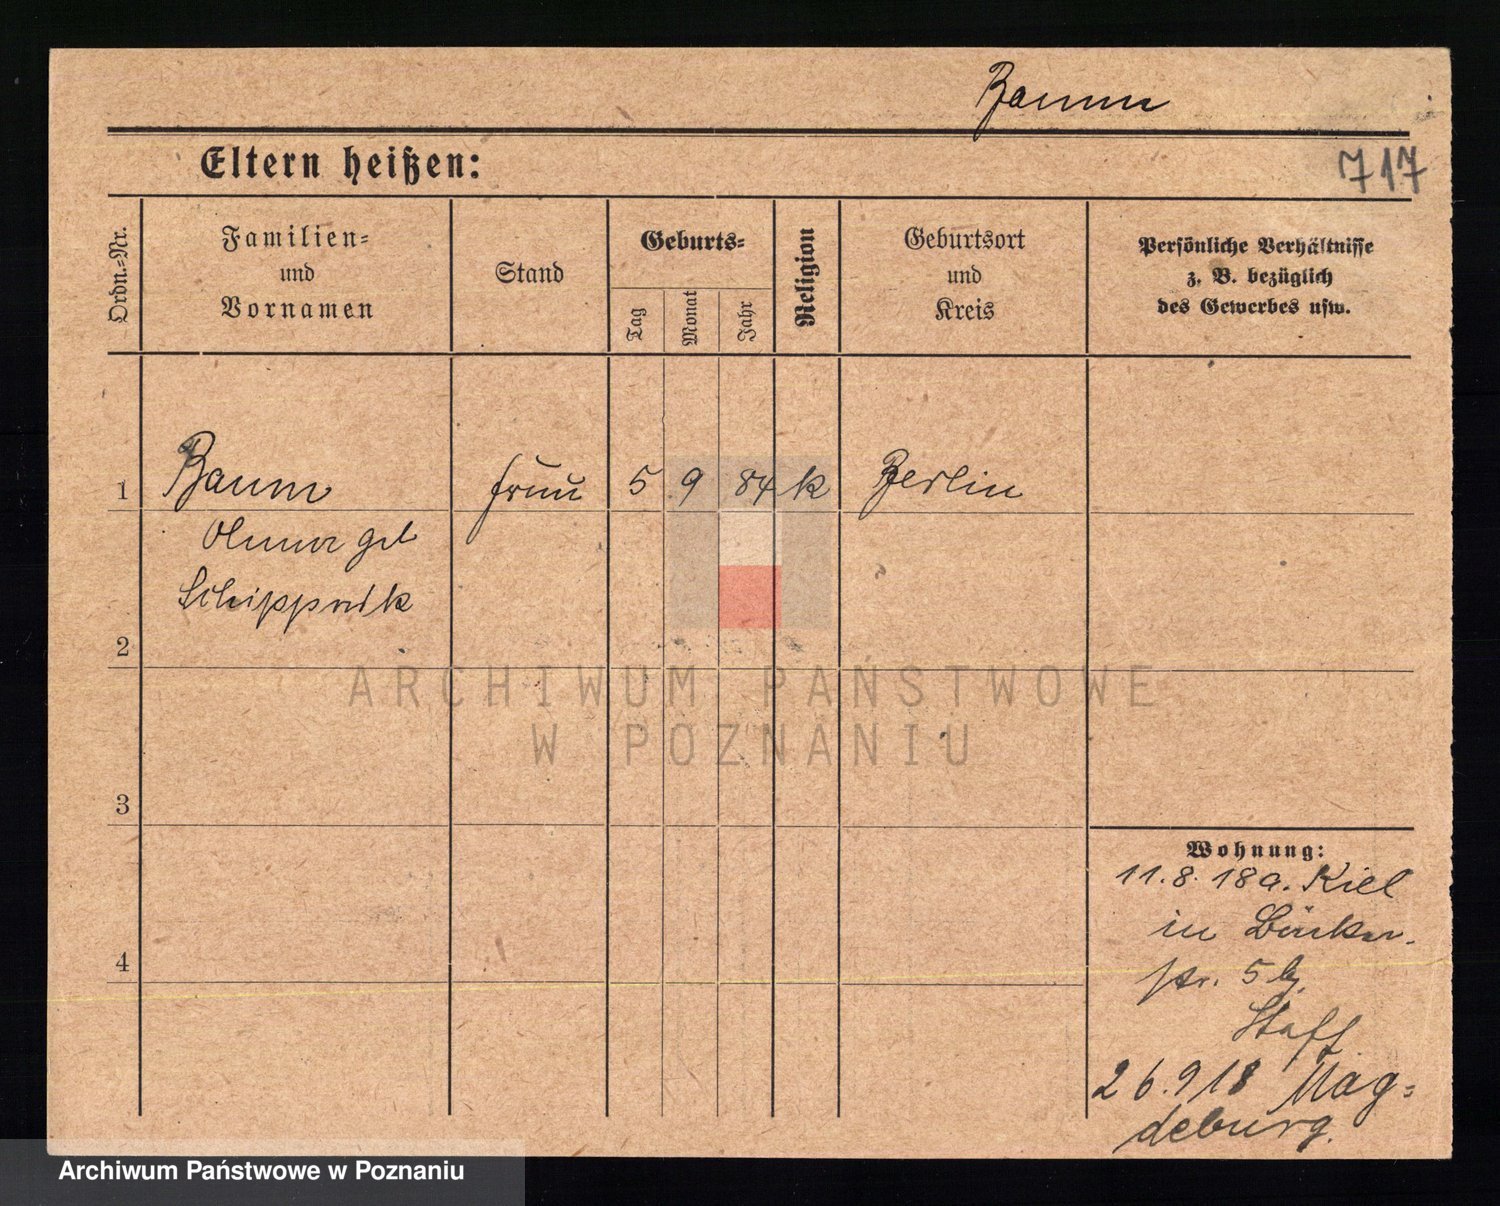 Baum
Eltern heißen:
717
Ordn.=Nr.
Familien=
und
Vornamen
Stand
Geburts=
Tag
Monat
Jahr
Religion
Geburtsort
und
Kreis
Persönliche Verhältnisse
z. B. bezüglich
des Gewerbes usw.
1 Baum Frau 5 9 84 k Berlin
geb
2
ARCHIWUM PAŃSTWOWE
W POZNANIU
3
Wohnung:
11.8.18 a. Kiel
in Bäcker-
4
str. 5 b.
26.9 18 Mag=
deburg.
Archiwum Państwowe w Poznaniu